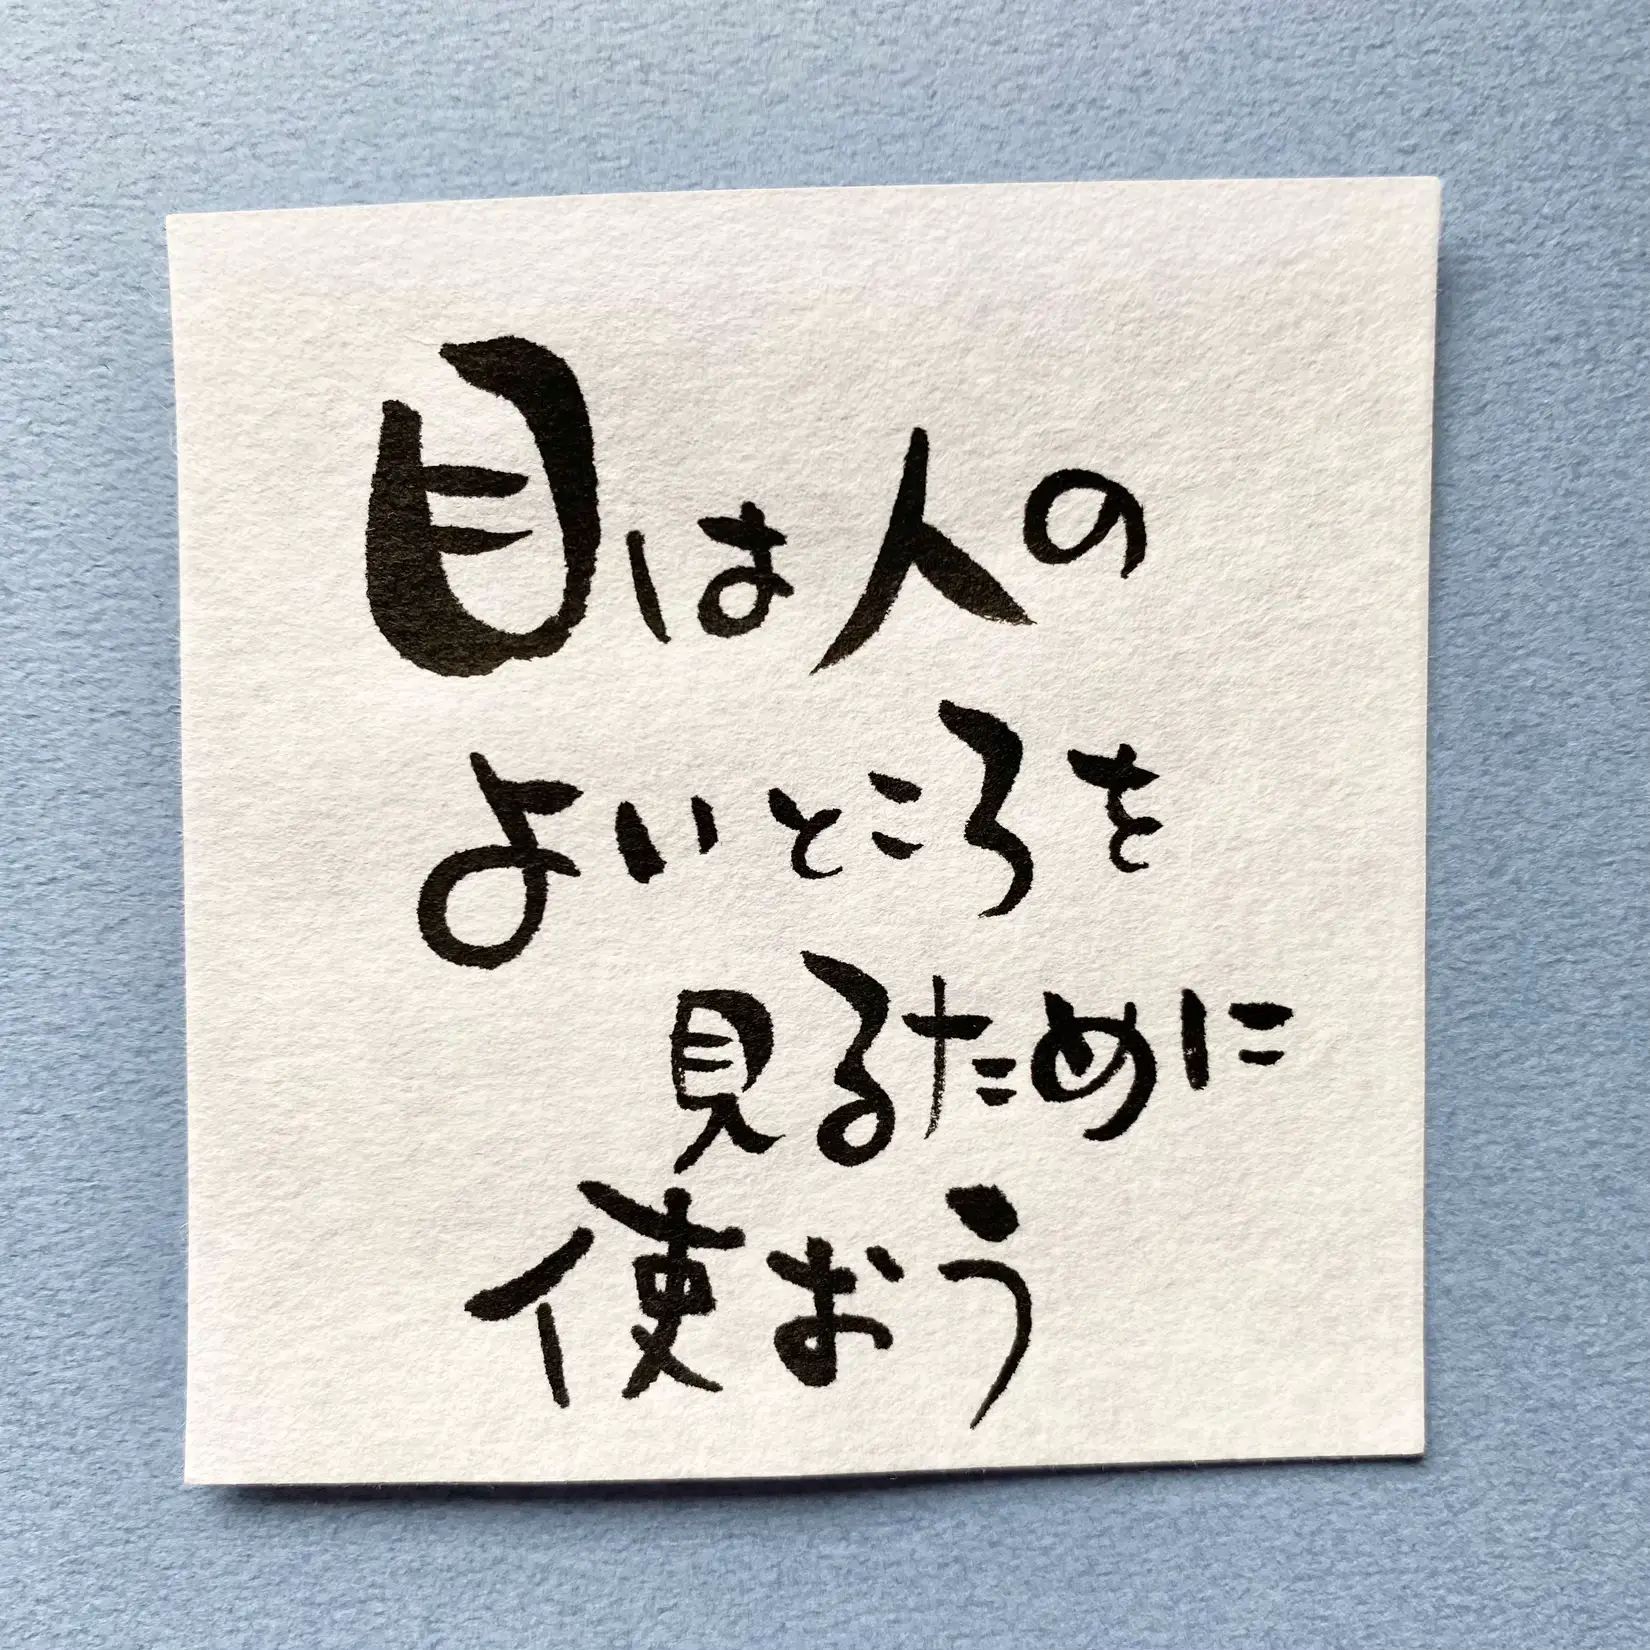 目は人の
よいところを
見るために
使おう